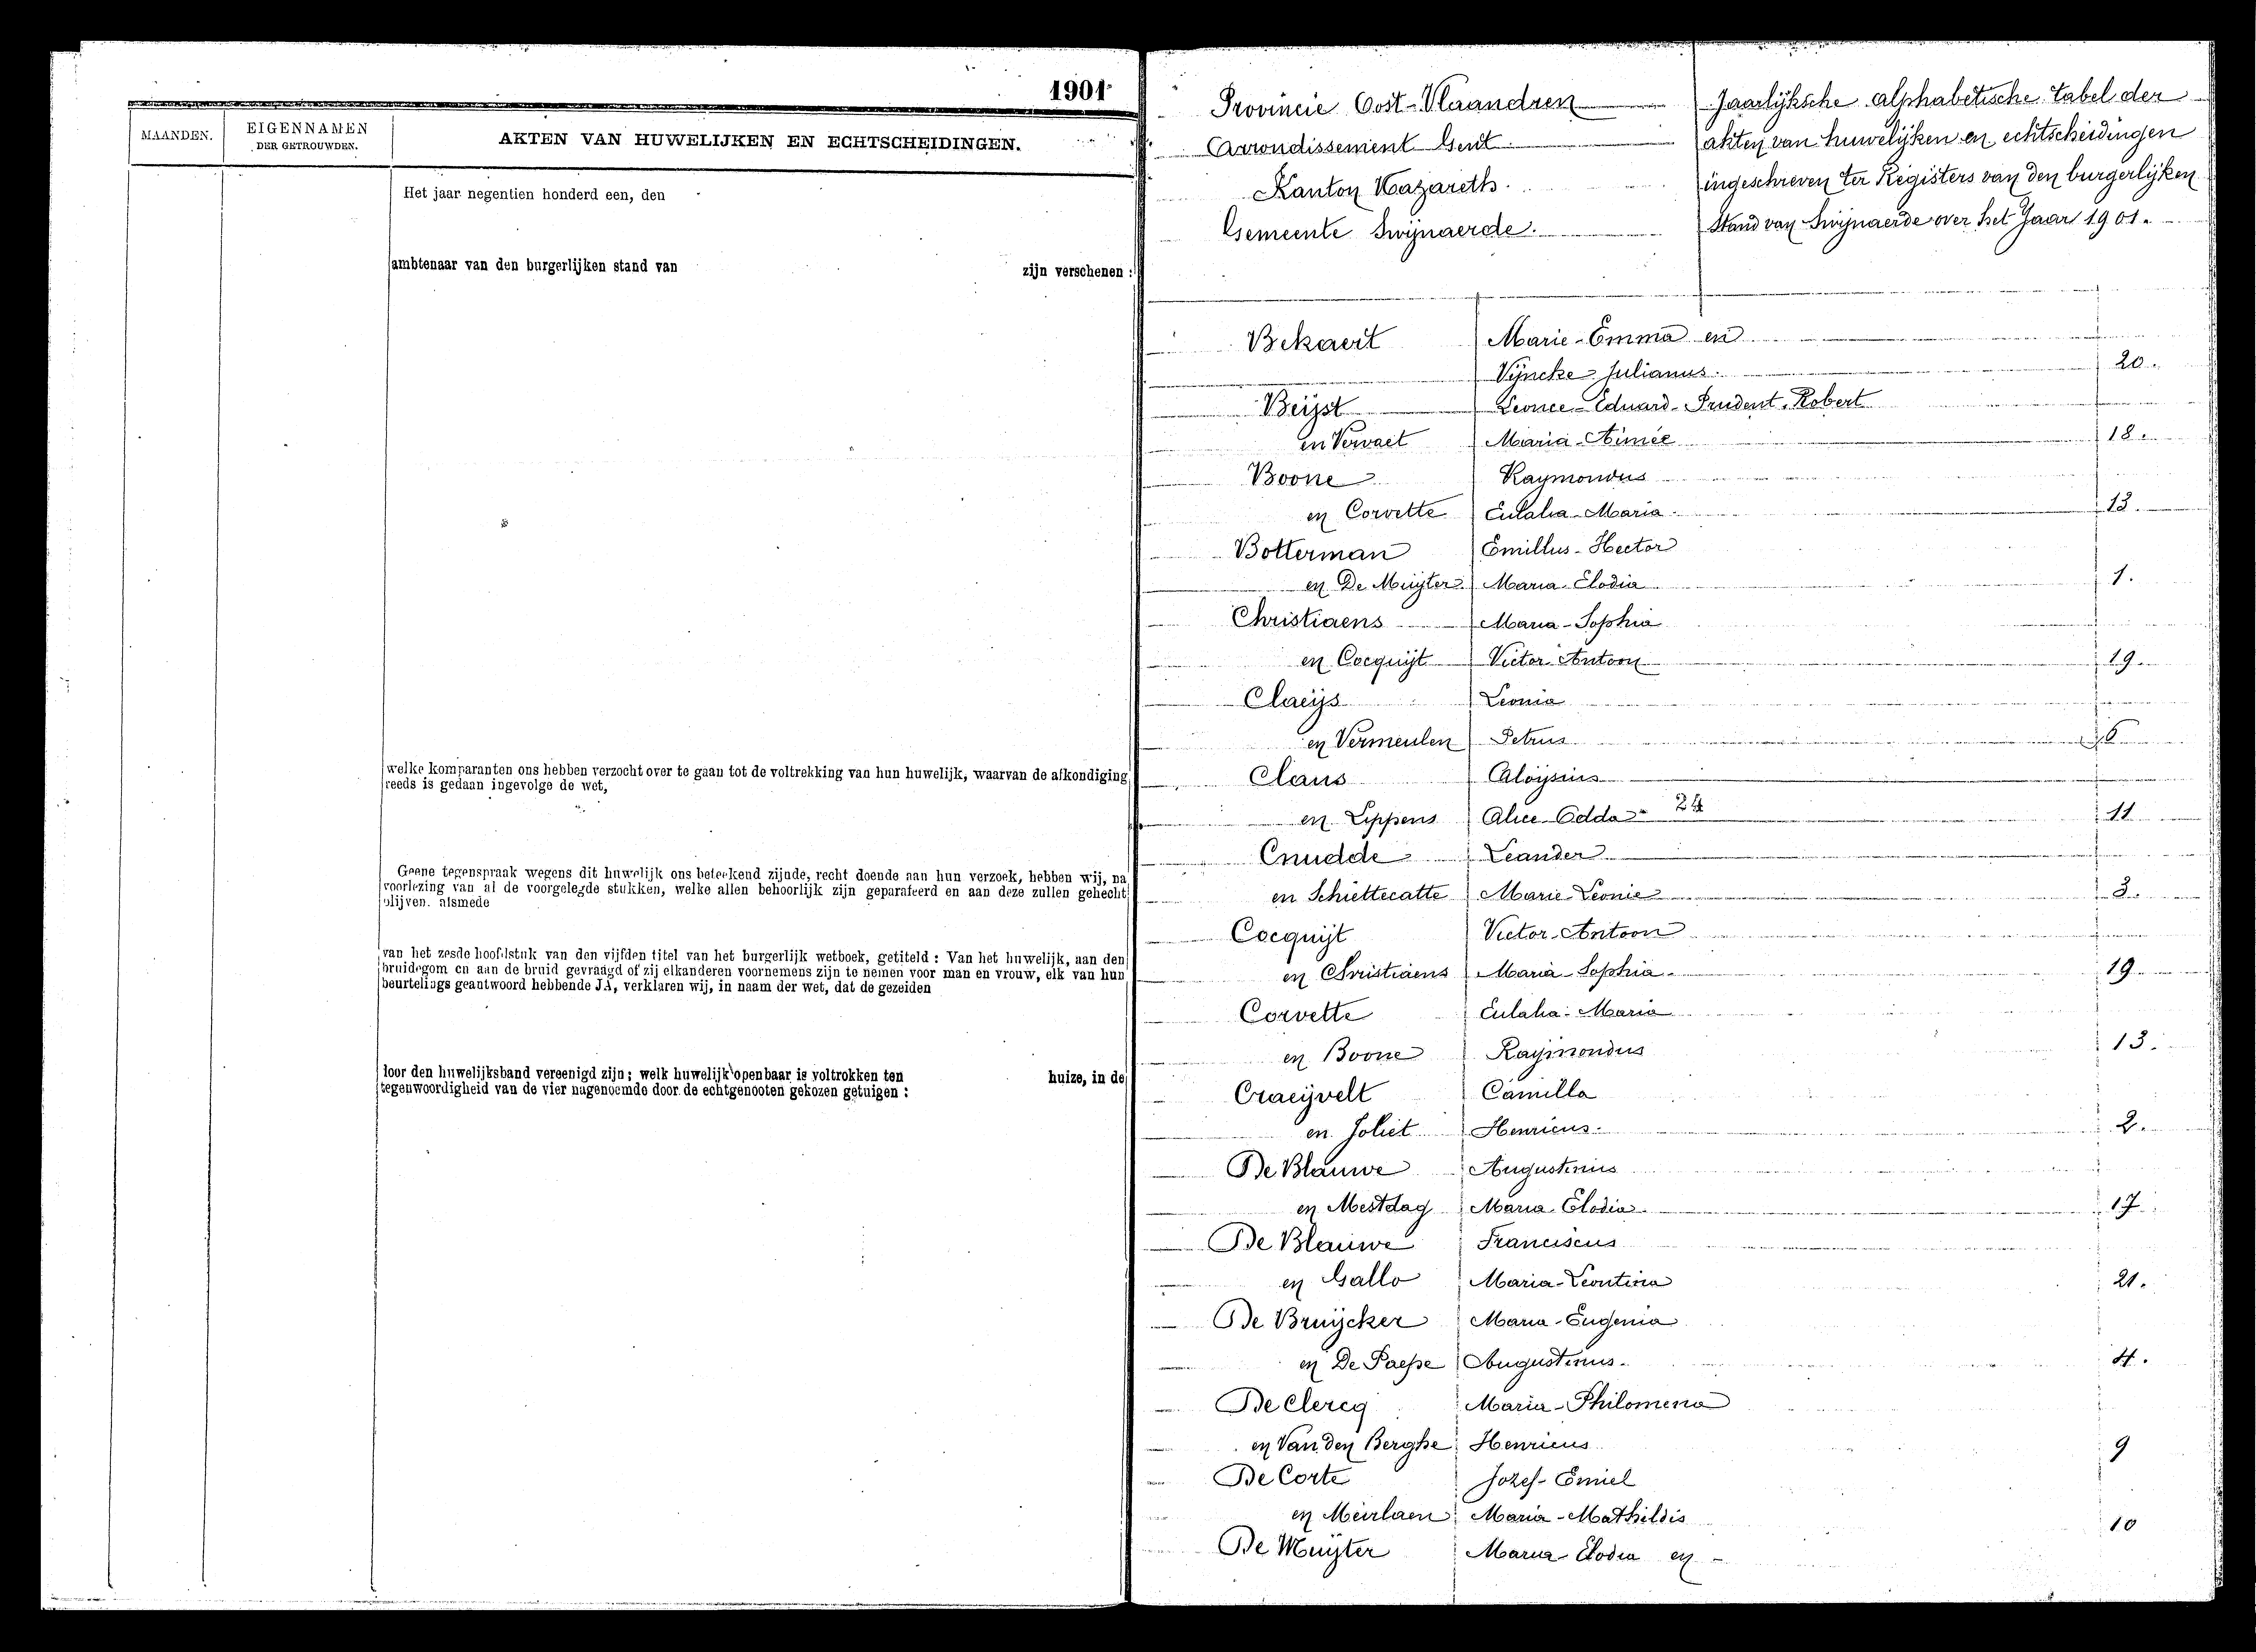 1901
MAANDEN.
EIGENNAMEN
DER GETROUWDEN.
AKTEN VAN HUWELIJKEN EN ECHTSCHEIDINGEN.
Het jaar negentien honderd een, den
ambtenaar van den burgerlijken stand van zijn verschenen :
welke komparanten ons hebben verzocht over te gaan tot de voltrekking van hun huwelijk, waarvan de afkondiging
reeds is gedaan ingevolge de wet,
Geene tegenspraak wegens dit huwelijk ons beteekend zijnde, recht doende aan hun verzoek, hebben wij, na
voorlezing van al de voorgelegde stukken, welke allen behoorlijk zijn geparafeerd en aan deze zullen gehecht
blijven, alsmede
van het zesde hoofdstuk van den vijfden titel van het burgerlijk wetboek, getiteld : Van het huwelijk, aan den
bruidegom en aan de bruid gevraagd of zij elkanderen voornemens zijn te nemen voor man en vrouw, elk van hun
beurtelings geantwoord hebbende JA, verklaren wij, in naam der wet, dat de gezeiden
loor den huwelijksband vereenigd zijn; welk huwelijk openbaar is voltrokken ten huize, in de
tegenwoordigheid van de vier nagenoemde door de echtgenooten gekozen getuigen :
Provincie Oost-Vlaandren
Arrondissement Gent
Kanton Nazareth.
Gemeente Swijnaerde.
Jaarlijksche alphabetische tabel der
akten van huwelijken en echtscheidingen
ingeschreven ter Registers van den burgerlijken
Stand van Swijnaerde over het Jaar 1901.
Bekaert Marie-Emma en
Vÿncke Julianus. 20.
Beijst Leonce-Eduard-Prudent-Robert
en Vervaet Maria-Aimée 18.
Boone Raymondus
en Corvette Eulalia-Maria. 13.
Botterman Emillus-Hector
en De Muijter Maria-Elodia 1.
Christiaens Maria-Sophia
en Cocquijt Victor-Antoon 19.
Claeijs Leonia
en Vermeulen Petrus 6
Claus Aloijsius
en Lippens Alice-Odda 24 11
Cnudde Leander
en Schiettecatte Marie-Leonie 3.
Cocquijt Victor-Antoon
en Christiaens Maria-Sophia. 19
Corvette Eulalia-Maria
en Boone Raijmondus 13.
Craeijvelt Camilla
en Joliet Henricus. 2.
De Blauwe Augustinus
en Mestdag Maria-Elodia 17
De Blauwe Franciscus
en Gallo Maria-Leontina 21.
De Bruijcker Maria-Eugenia
en De Paepe Augustinus. 4.
De Clercq Maria-Philomena
en Van den Berghe Henricus 9
De Corte Jozef-Emiel
en Meirlaen Maria-Mathildis 10
De Muijter Maria Elodia en -